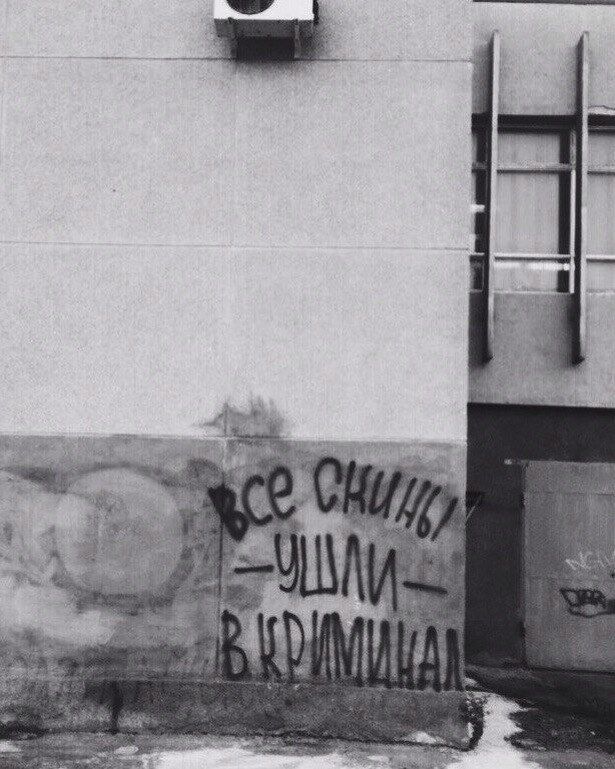 все скины
— ушли —
в криминал